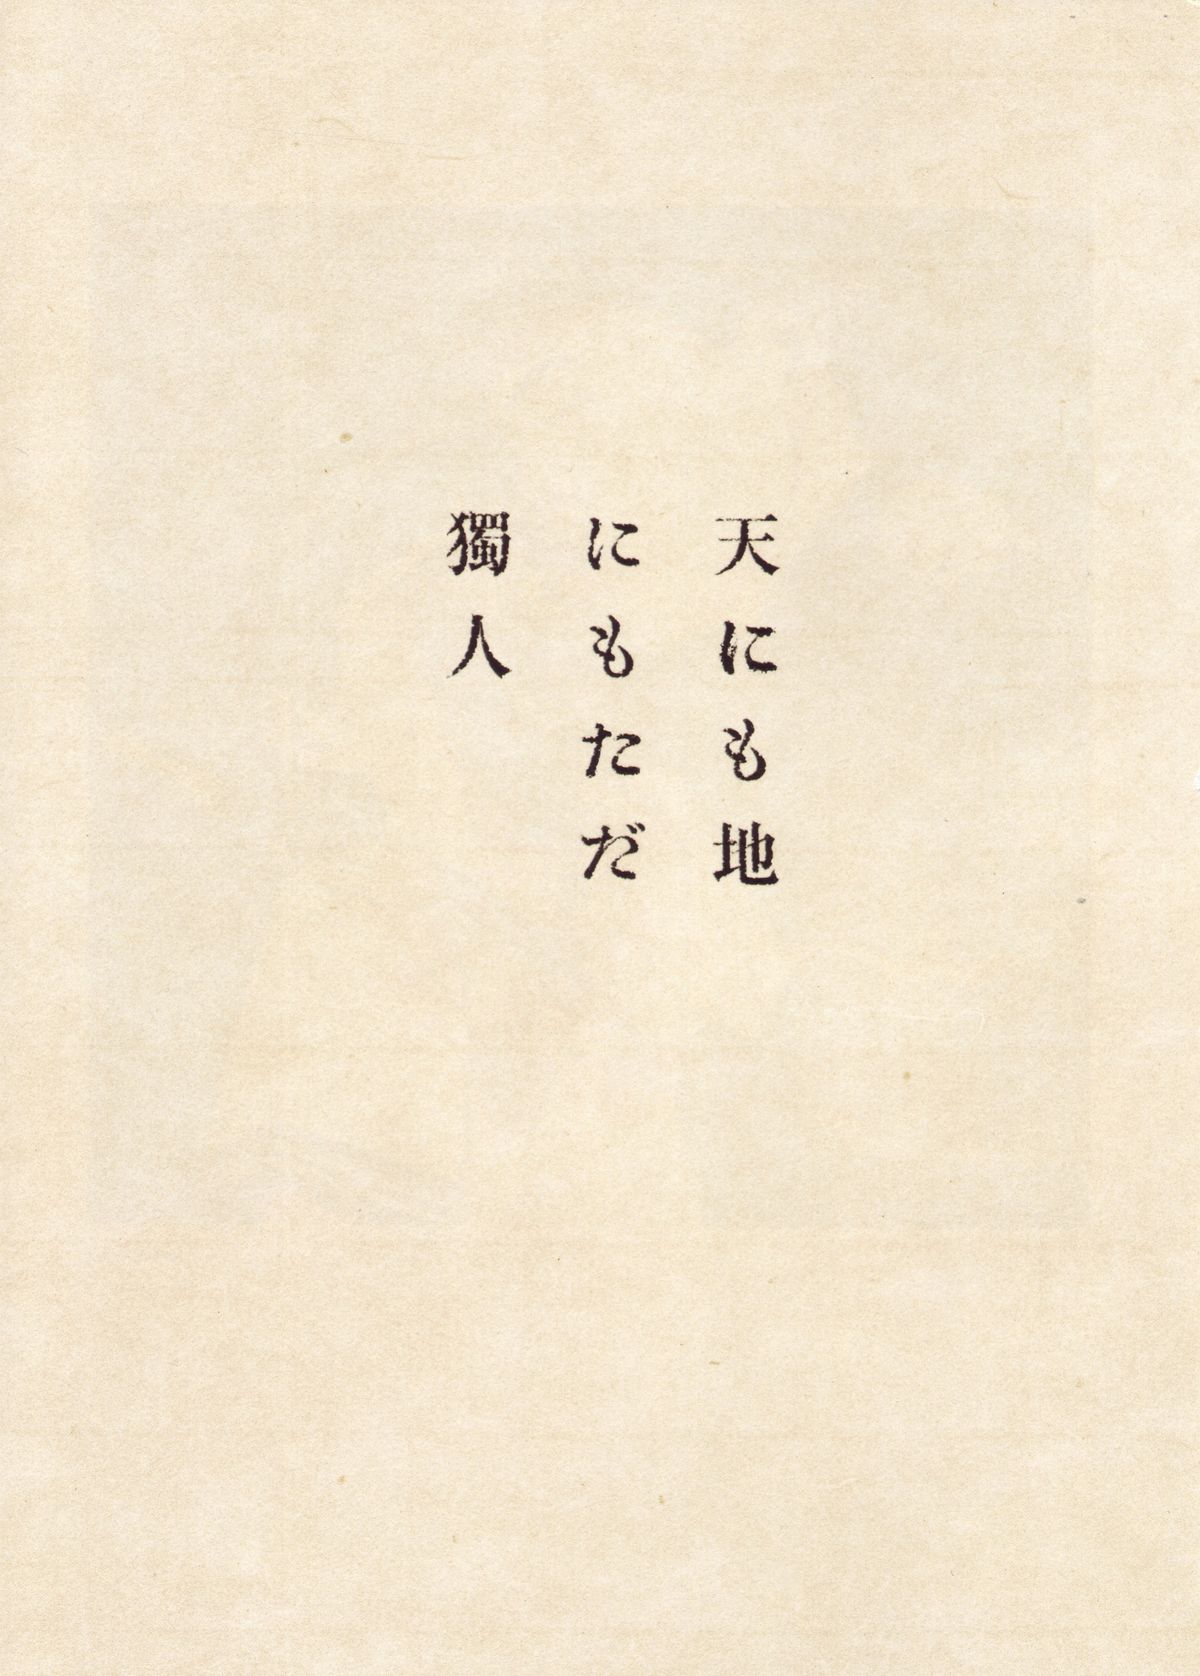 天にも地
にもただ
獨人